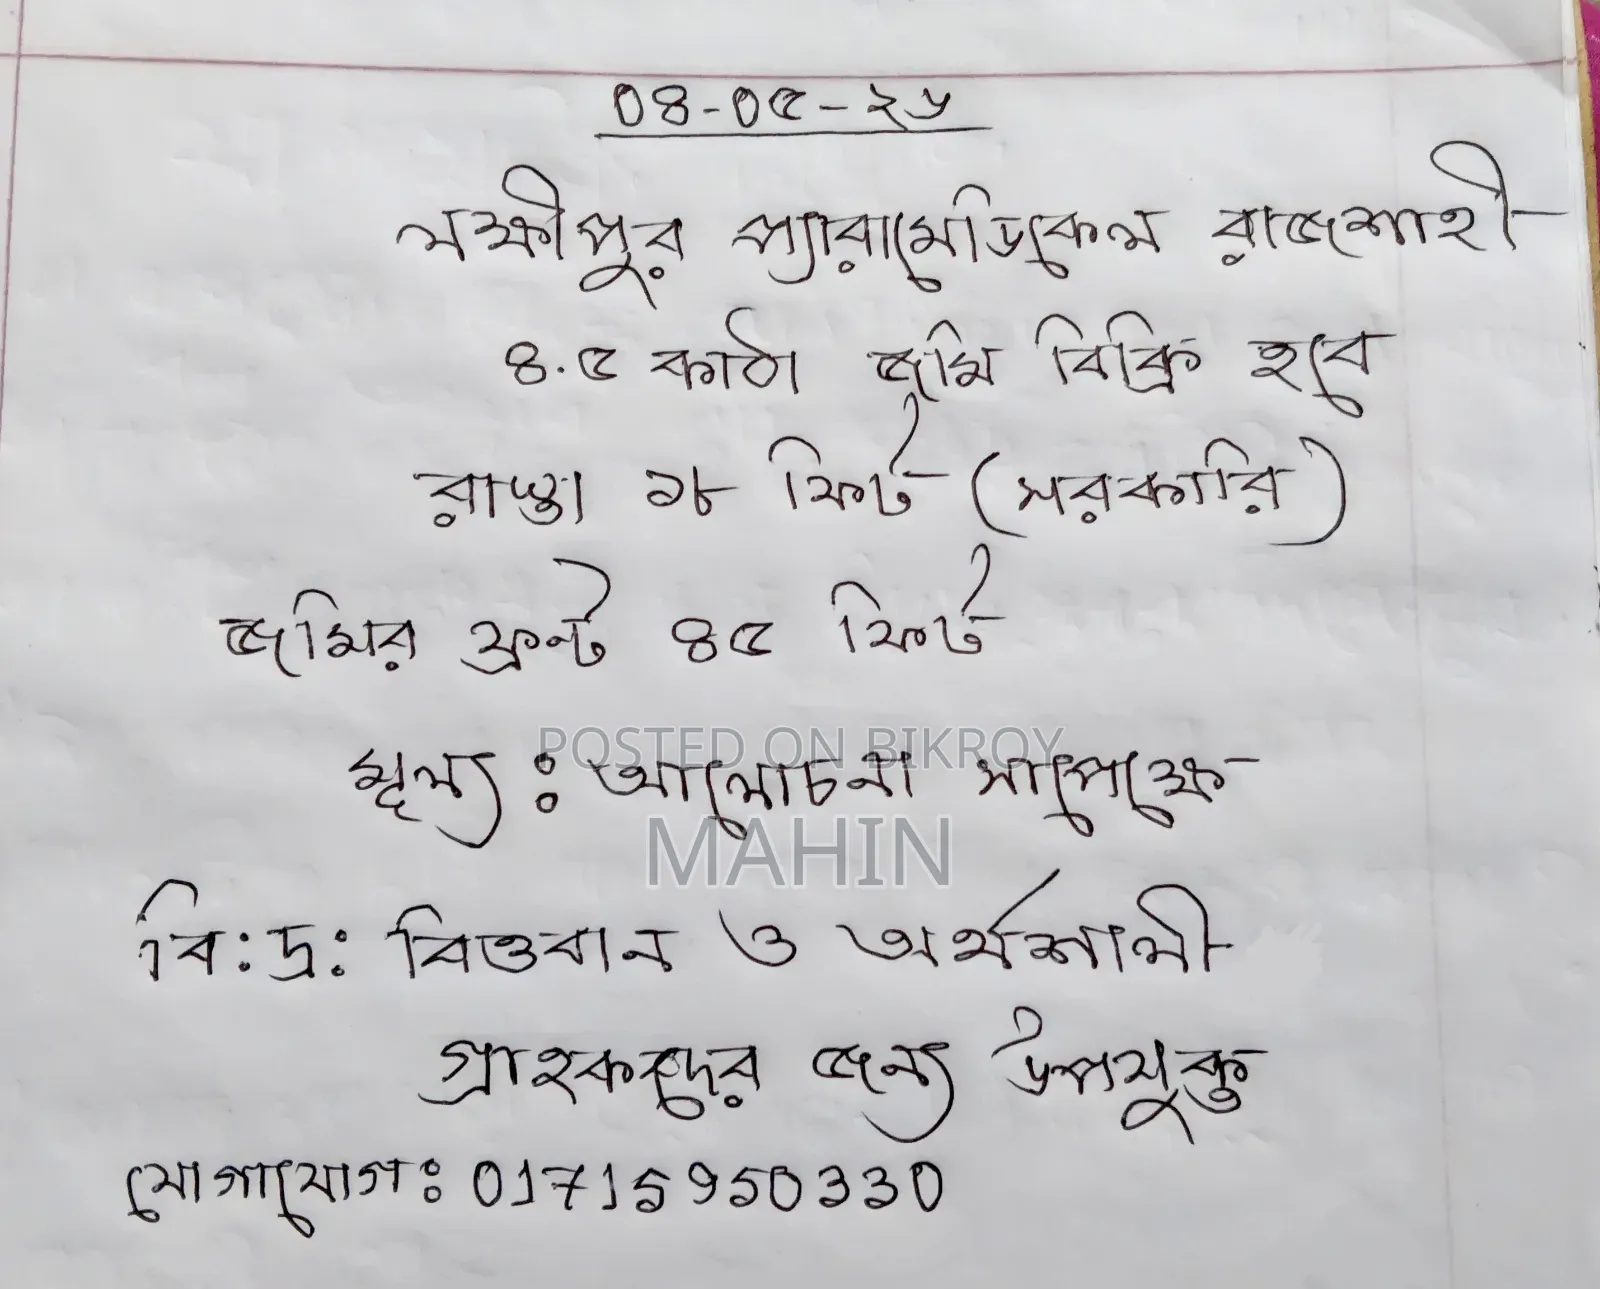 ০৪-০৫-২৬
লক্ষীপুর প্যারামেডিকেল রাজশাহী
৪.৫ কাঠা জমি বিক্রি হবে
রাস্তা ১৮ ফিট (সরকারি)
জমির ফ্রন্ট ৪৫ ফিট
POSTED ON BIKROY
মূল্য : আলোচনা সাপেক্ষে
MAHIN
বি:দ্র: বিত্তবান ও অর্থশালী
গ্রাহকদের জন্য উপযুক্ত
যোগাযোগ: 01715950330